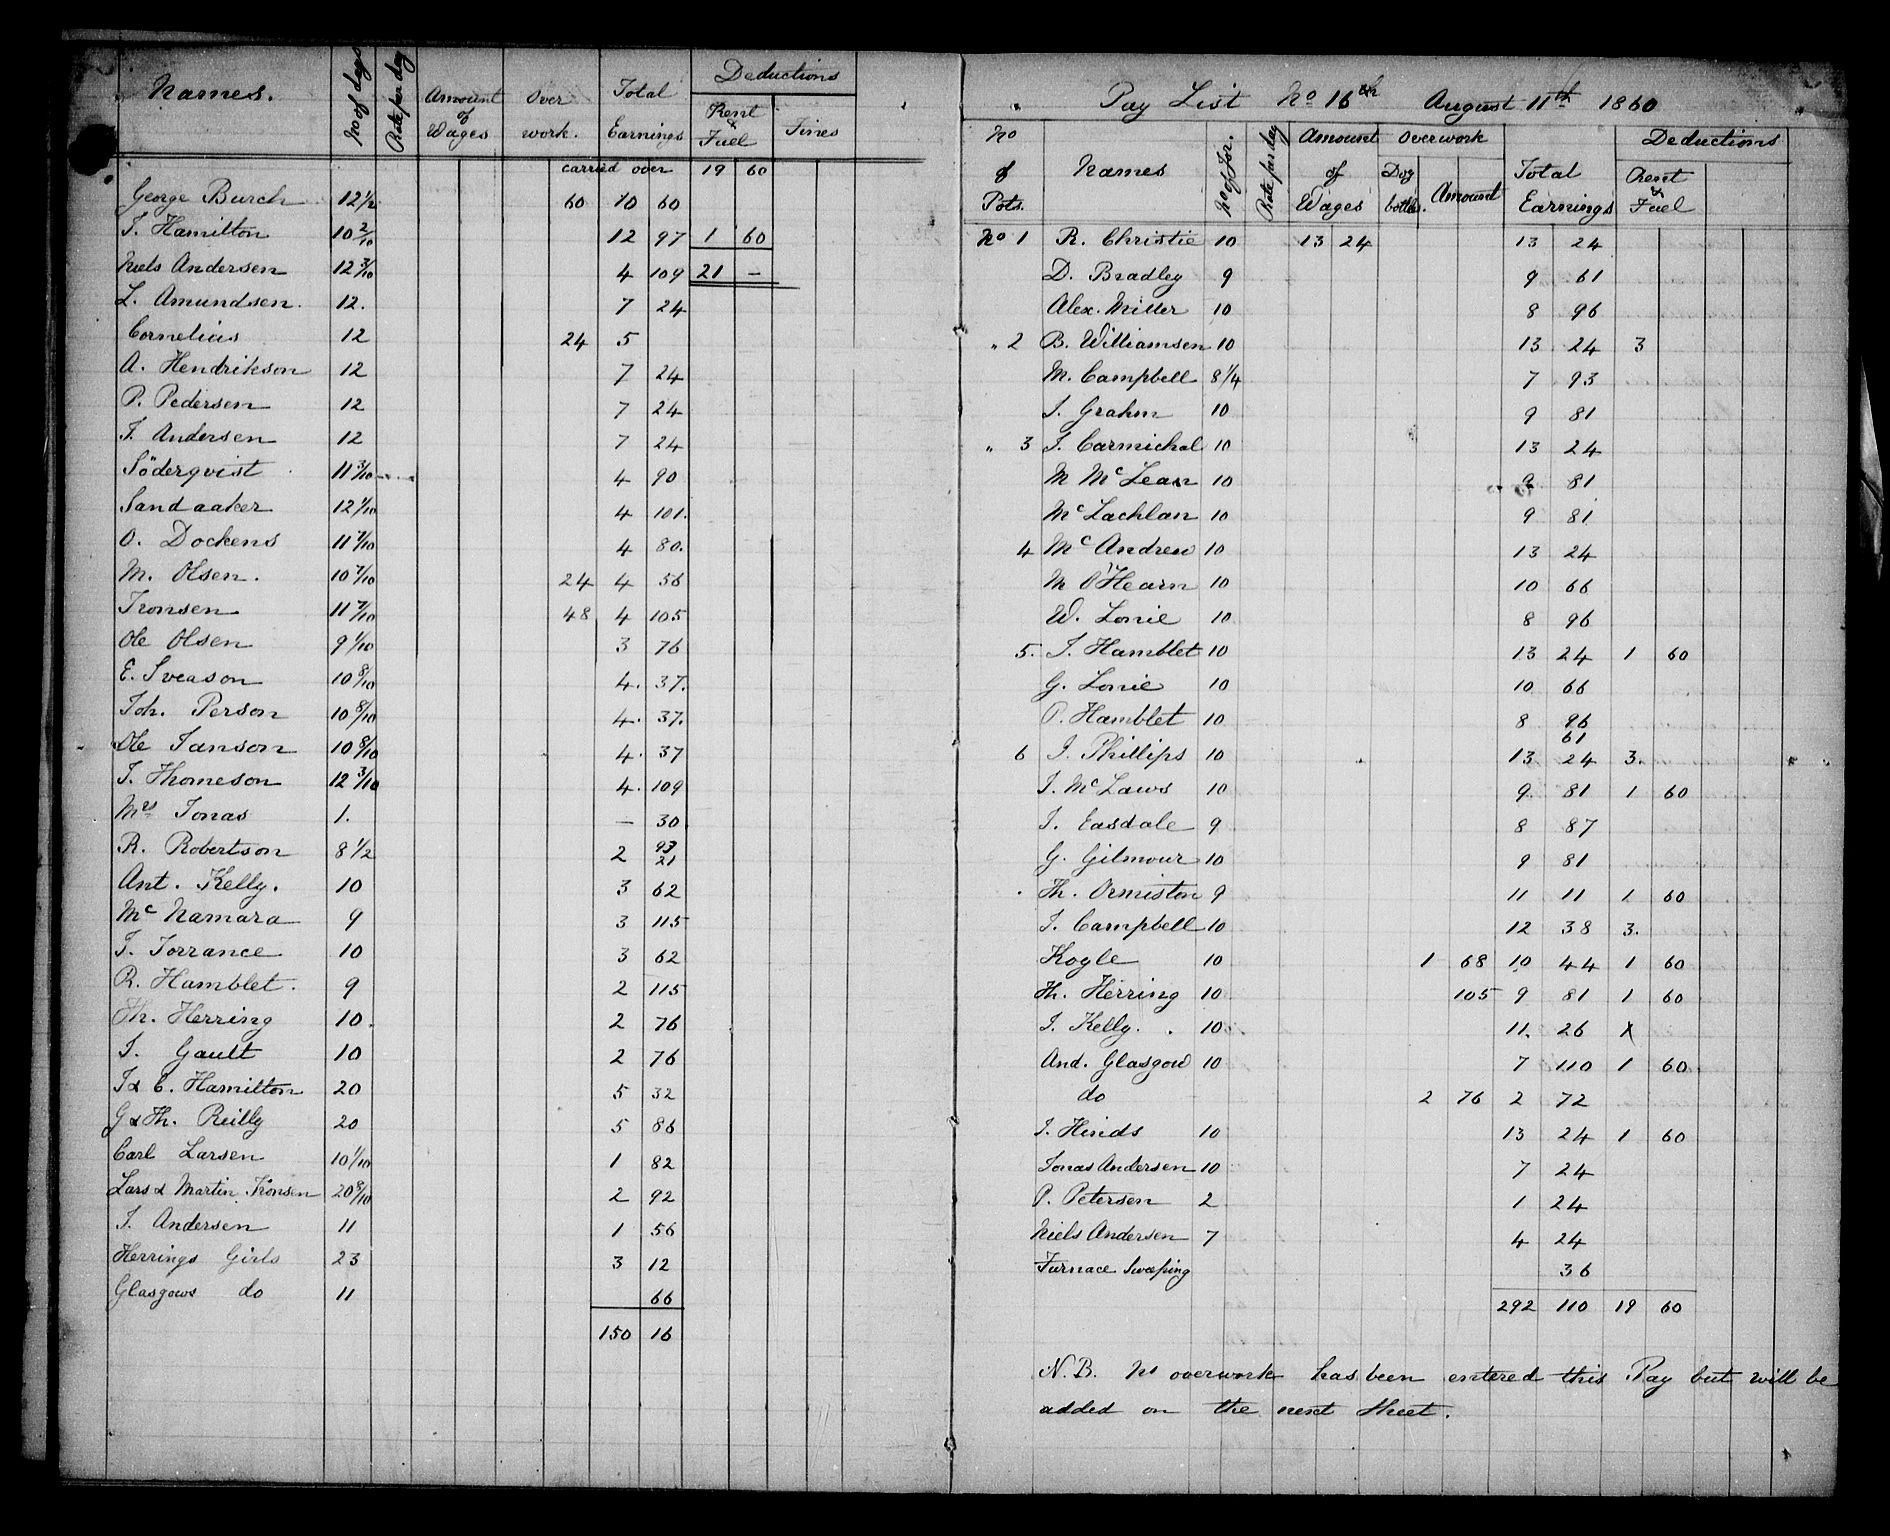 Names. No of days Rate per day Amount of Wages Over work. Total Earnings Deductions Rent & Fuel Fines
carried over 19 60
George Burch 12 1/2 60 10 60
J. Hamilton 10 2/10 12 97 1 60
Niels Andersen 12 3/10 4 109 21 —
L. Amundsen. 12. 7 24
Cornelius 12 24 5
A. Hendrikson 12 7 24
P. Pedersen 12 7 24
J. Andersen 12 7 24
Söderqvist 11 3/10 4 90
Sandaaker 12 1/10 4 101.
O. Dockens 11 7/10 4 80.
M. Olsen. 10 7/10 24 4 56
Tronsen 11 7/10 48 4 105
Ole Olsen 9 1/10 3 76
E. Sveason 10 8/10 4. 37.
Joh. Person 10 8/10 4. 37.
Ole Janson 10 8/10 4. 37
J. Thomeson 12 3/10 4. 109
Mrs Jonas 1. — 30
R. Robertson 8 1/2 2 93 21
Ant. Kelly. 10 3 62
Mc Namara 9 3 115
J. Torrance 10 3 62
R. Hamblet. 9 2 115
Th. Herring 10. 2 76
J. Gault 10 2 76
J & C. Hamilton 20 5 32
G & Th. Reilly 20 5 86
Carl Larsen 10 1/10 1 82
Lars & Martin Tronsen 20 8/10 2 92
J. Andersen 11 1 56
Herrings Girls 23 3 12
Glasgows do 11 66
150 16
Pay List No 16th August 11th 1860
No of Pots. Names No of Jor. Rate per day Amount of Wages Overwork Dog bottles. Amount Total Earnings Deductions Rent & Fuel
No 1 R. Christie 10 13 24 13 24
D. Bradley 9 9 61
Alex. Miller 10 8 96
" 2 B. Williamsen 10 13 24 3
M. Campbell 8 1/4 7 93
J. Grahm 10 9 81
" 3 J. Carmichal 10 13 24
M McLean 10 9 81
McLachlan 10 9 81
4 McAndrew 10 13 24
M O'Hearn 10 10 66
W. Lonie 10 8 96
5. J. Hamblet 10 13 24 1 60
G. Lonie 10 10 66
P. Hamblet 10 8 96
61
6 J. Phillips 10 13 24 3.
J. McLaws 10 9 81 1 60
J. Easdale 9 8 87
G. Gilmour 10 9 81
Th. Ormiston 9 11 11 1 60
J. Campbell 10 12 38 3.
Kogle 10 1 68 10 44 1 60
Th. Herring 10 105 9 81 1 60
J. Kelly. 10 11. 26 X
And. Glasgow 10 7 110 1 60
do 2 76 2 72
J. Hinds 10 13 24 1 60
Jonas Andersen 10 7 24
P. Petersen 2 1 24
Niels Andersen 7 4 24
Furnace Sweeping 36
292 110 19 60
N.B. No overwork has been entered this Pay but will be
added on the next Sheet.